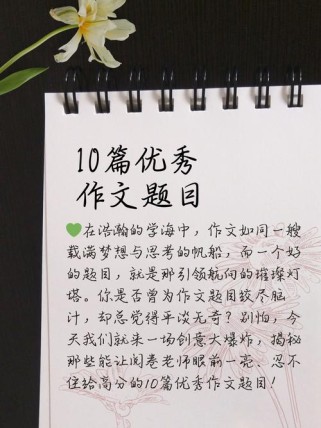 10篇优秀
作文题目
💚在浩瀚的学海中，作文如同一艘
载满梦想与思考的帆船，而一个好
的题目，就是那引领航向的璀璨灯
塔。你是否曾为作文题目绞尽脑
汁，却总觉得平淡无奇？别怕，今
天我们就来一场创意大爆炸，揭秘
那些能让阅卷老师眼前一亮、忍不
住给高分的10篇优秀作文题目！